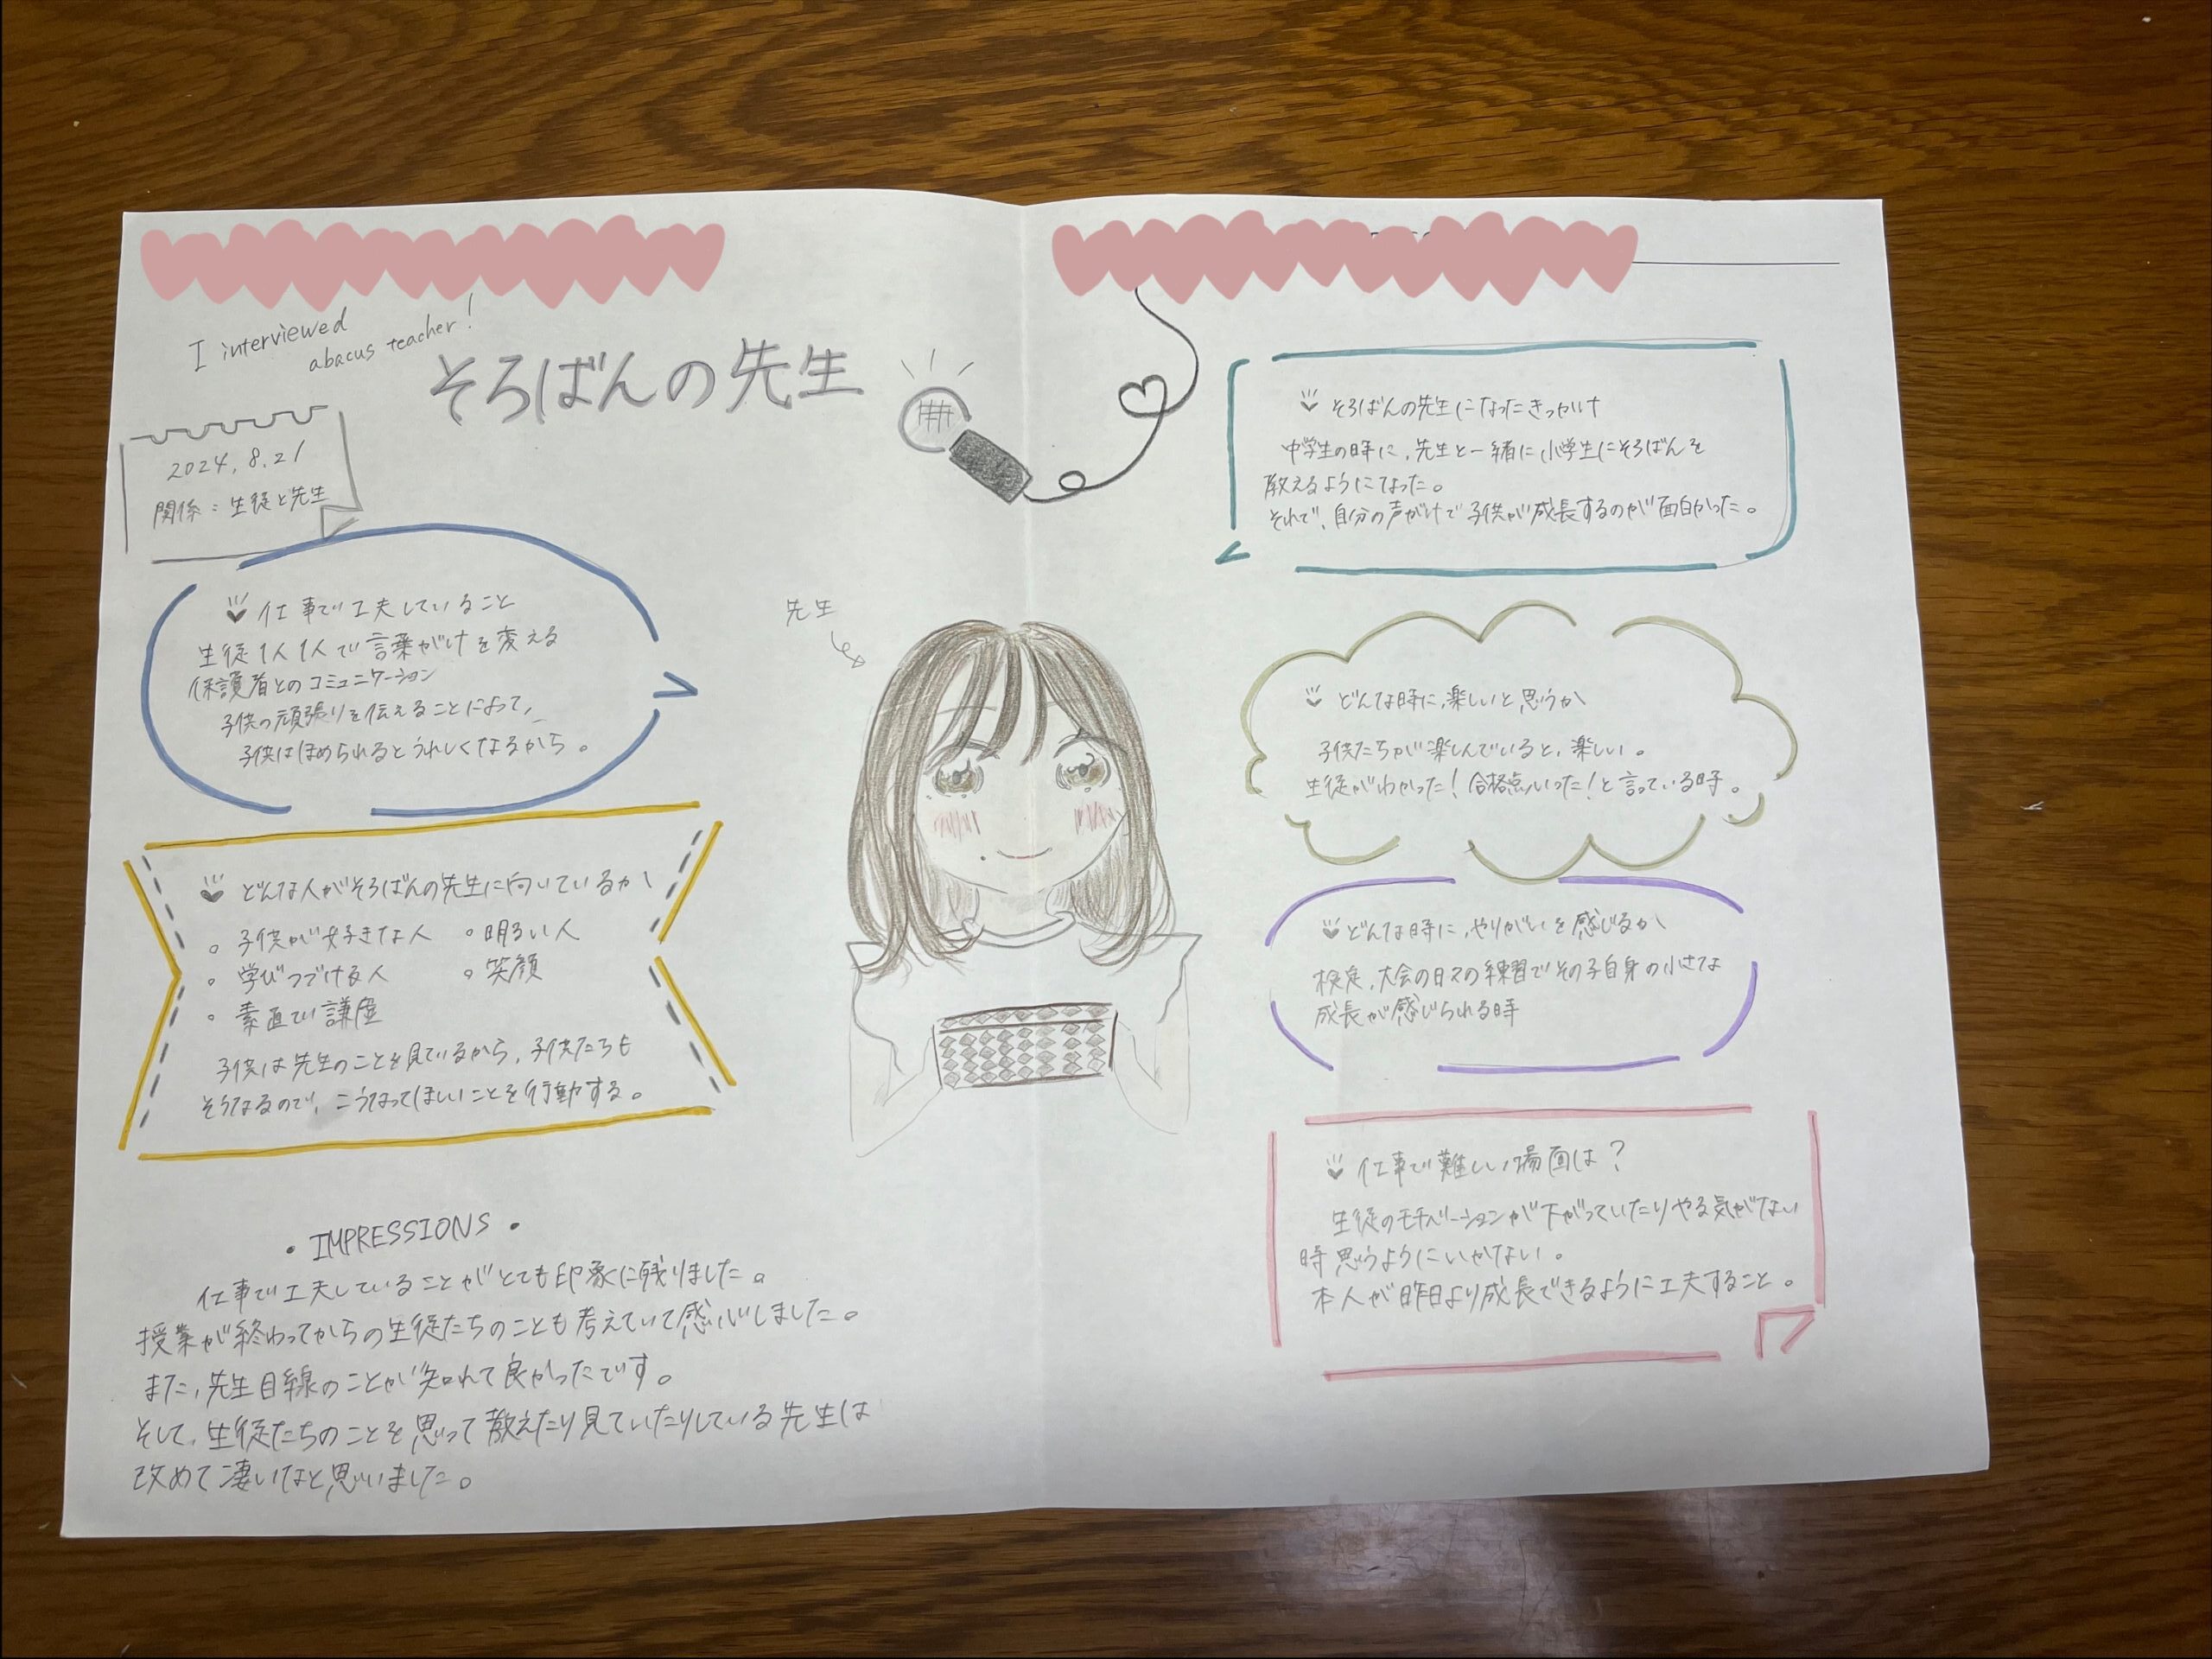 I interviewed
abacus teacher!
そろばんの先生
2024.8.21
関係:生徒と先生
仕事で工夫していること
生徒1人1人で言葉がけを変える
保護者とのコミュニケーション
子供の頑張りを伝えることによって、
子供はほめられるとうれしくなるから。
どんな人がそろばんの先生に向いているか
。子供が好きな人 。明るい人
。学びつづける人 。笑顔
。素直で謙虚
子供は先生のことを見ているから、子供たちも
そうなるので、こうなってほしいことを行動する。
・IMPRESSIONS・
仕事で工夫していることがとても印象に残りました。
授業が終わってからの生徒たちのことも考えていて感心しました。
また、先生目線のことが知れて良かったです。
そして、生徒たちのことを思って教えたり見ていたりしている先生は
改めて凄いなと思いました。
先生
そろばんの先生になったきっかけ
中学生の時に、先生と一緒に小学生にそろばんを
教えるようになった。
それで、自分の声がけで子供が成長するのが面白かった。
どんな時に、楽しいと思うか
子供たちが楽しんでいると、楽しい。
生徒がわかった!合格点いった!と言っている時。
どんな時に、やりがいを感じるか
検定、大会の日々の練習でその子自身の小さな
成長が感じられる時
仕事で難しい場面は?
生徒のモチベーションが下がっていたりやる気がない
時思うようにいかない。
本人が昨日より成長できるように工夫すること。